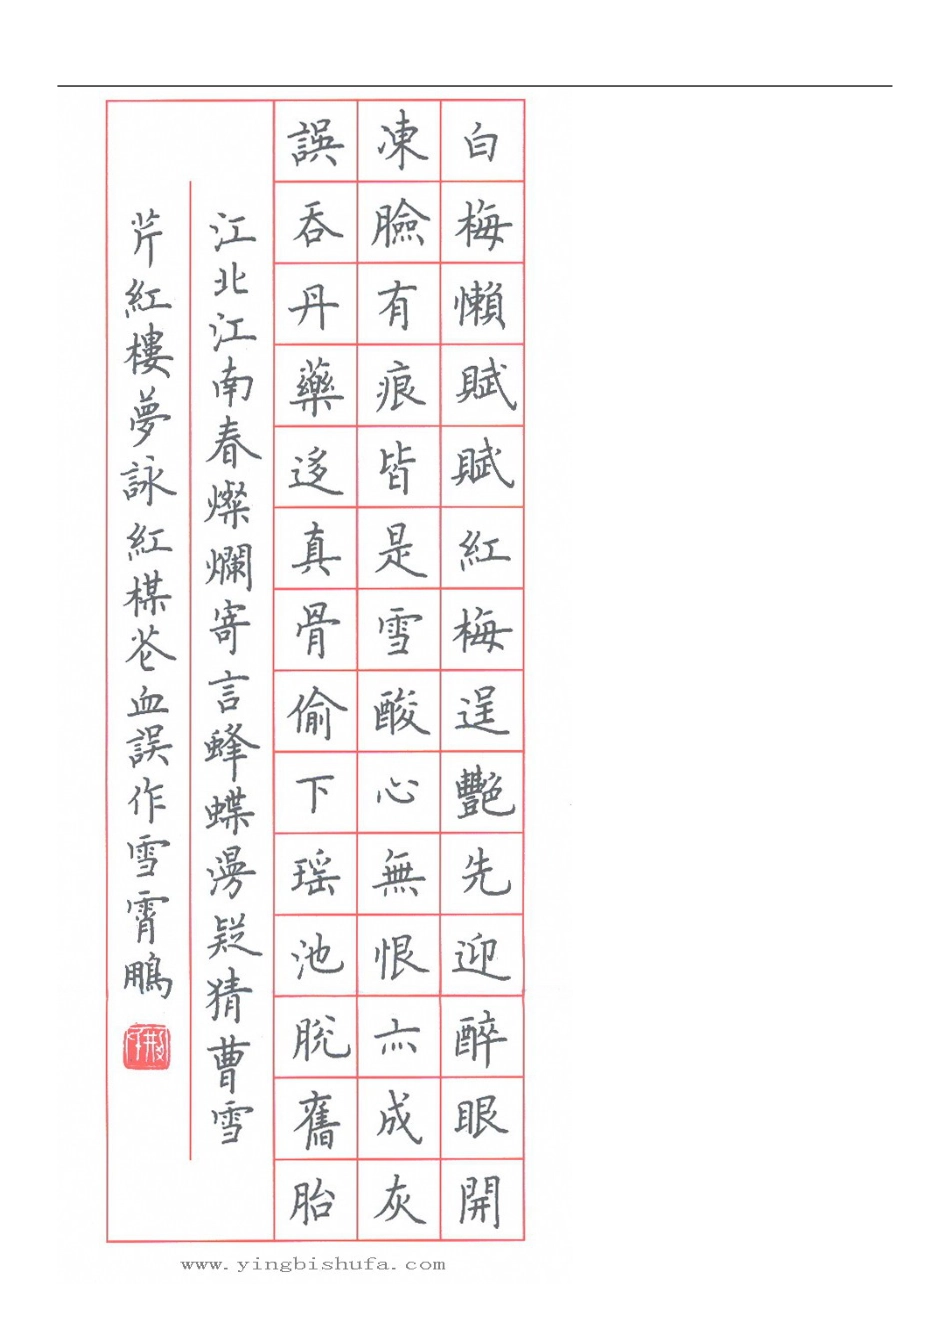 白梅懶賦賦紅梅逞艷先迎醉眼開
凍臉有痕皆是雪酸心無恨亦成灰
誤吞丹藥迻真骨偷下瑶池脱舊胎
江北江南春燦爛寄言蜂蝶漫疑猜曹雪
芹紅樓夢詠紅楳芲血誤作雪霄鵬
www.yingbishufa.com